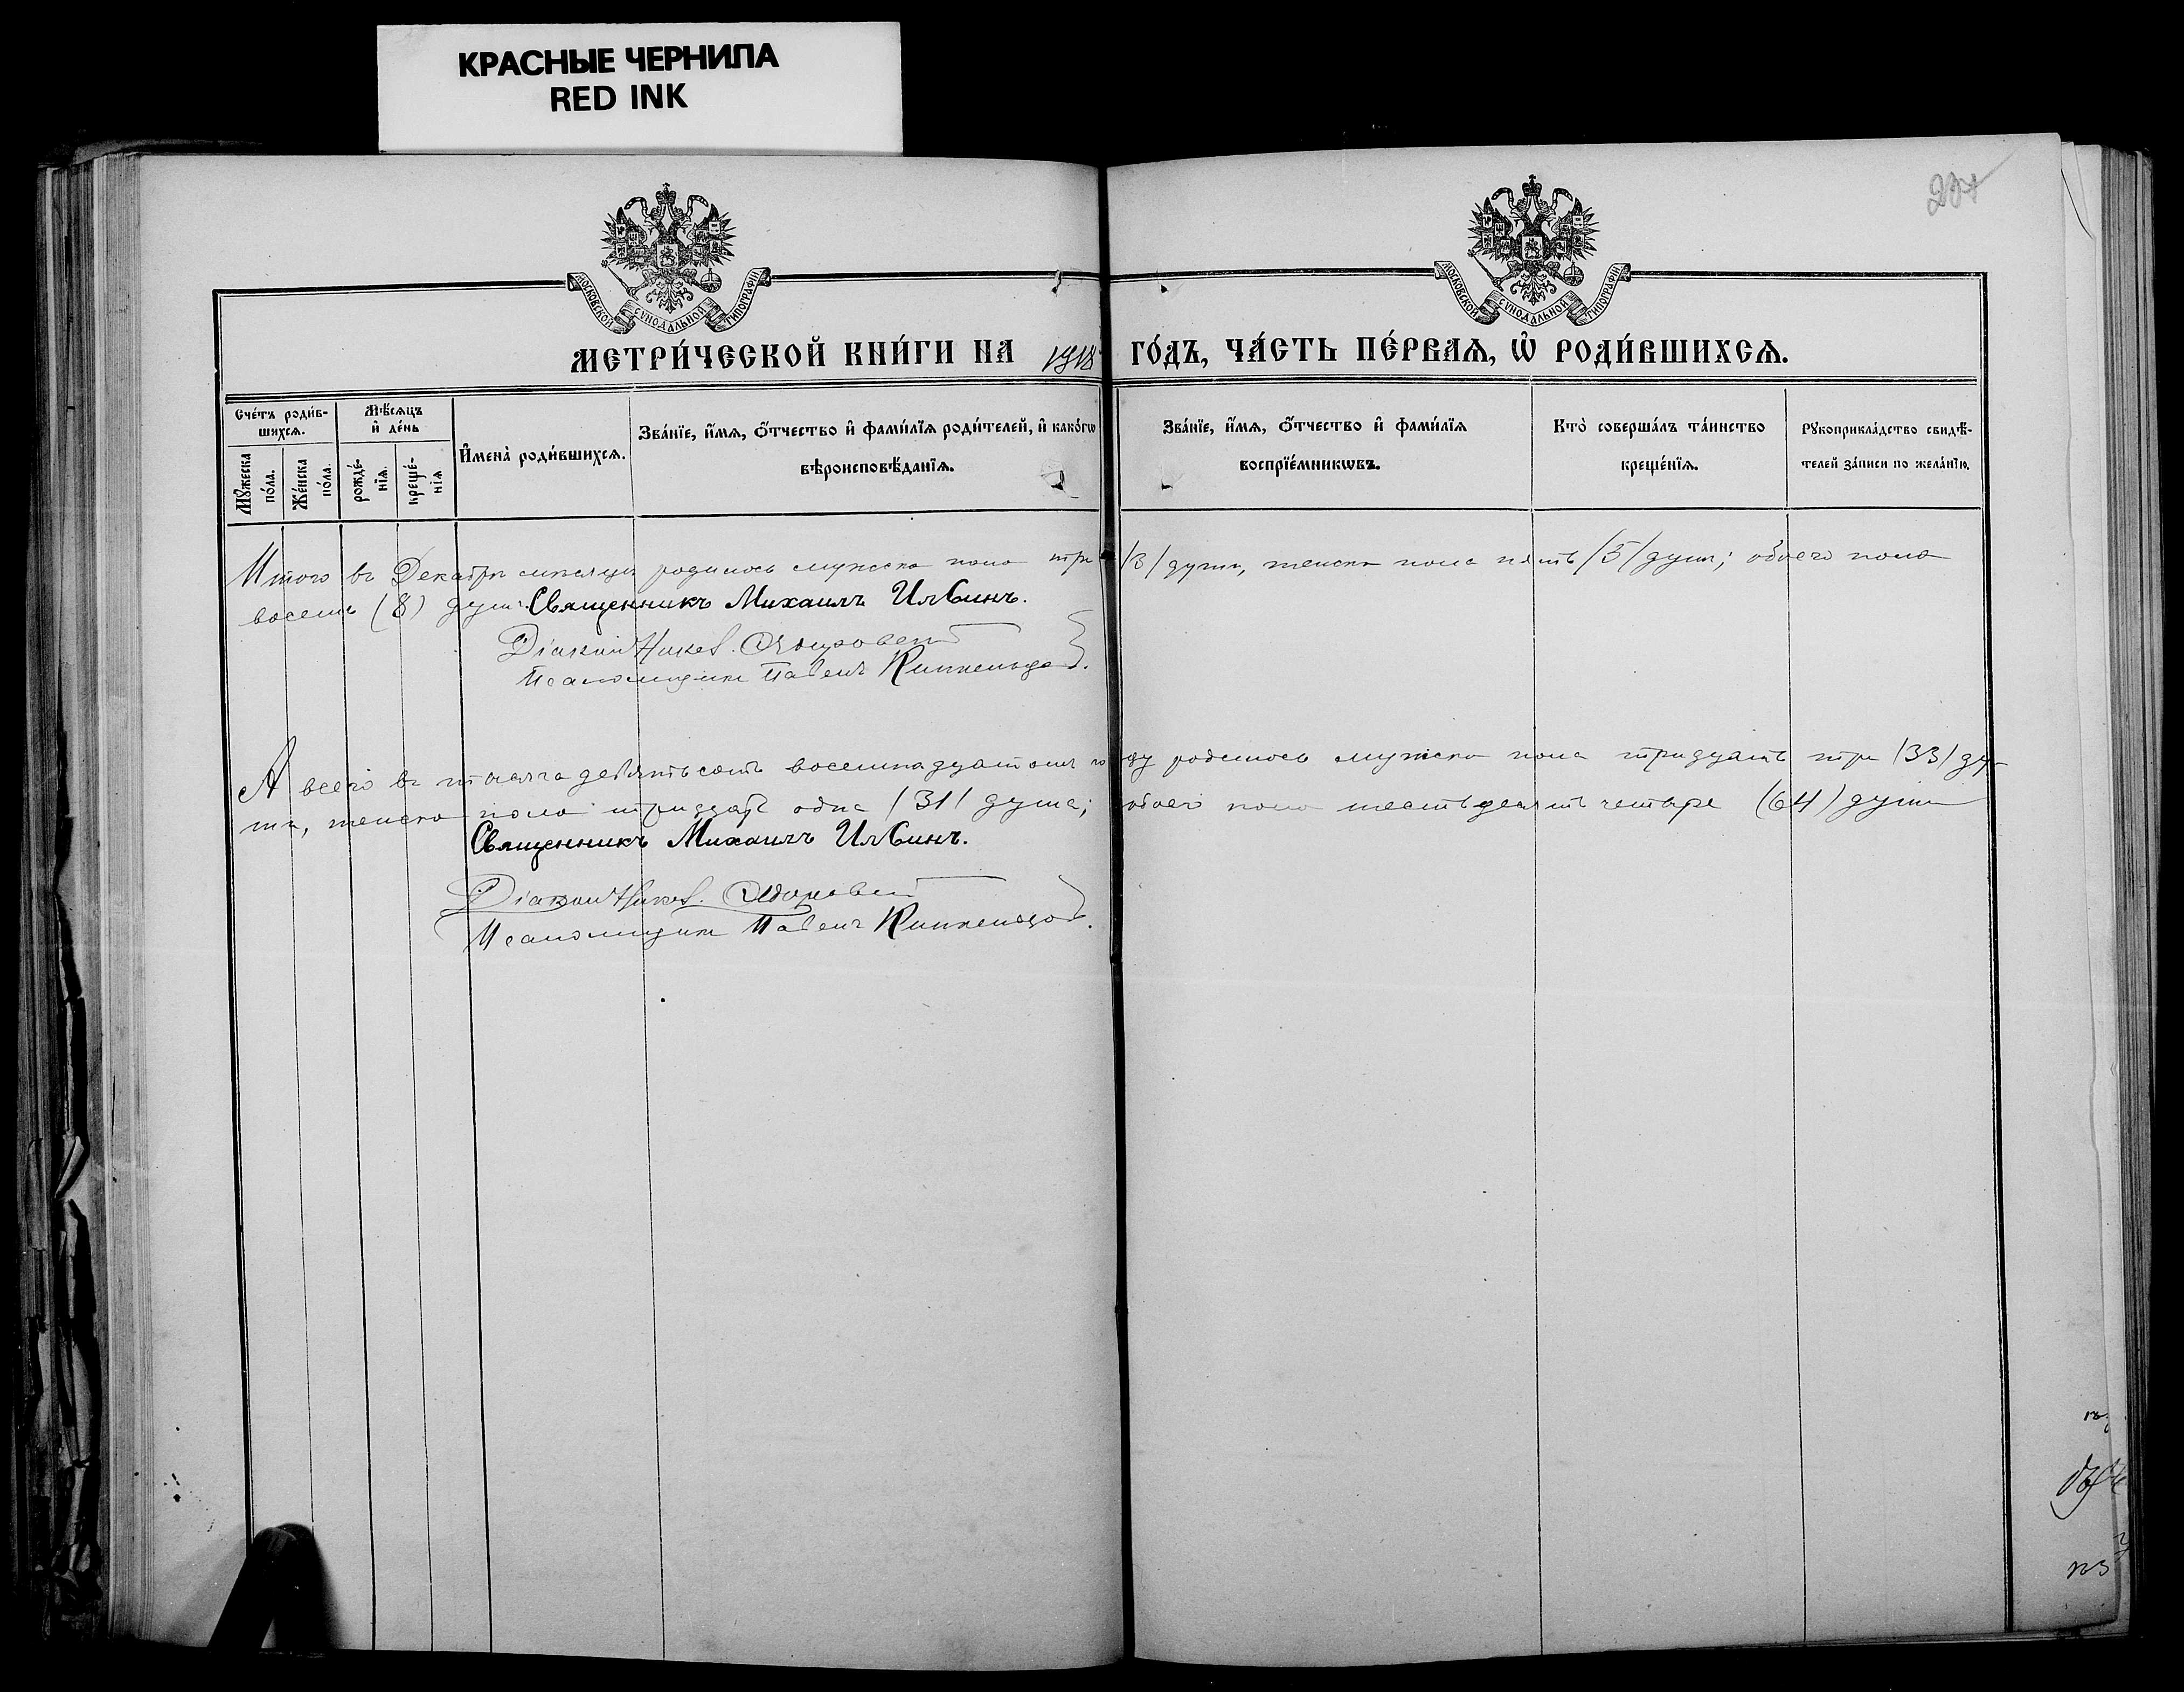 КРАСНЫЕ ЧЕРНИЛА
RED INK
МОСКОВСКОЙ СѴНОДАЛЬНОЙ ТИПОГРАФІИ
МОСКОВСКОЙ СѴНОДАЛЬНОЙ ТИПОГРАФІИ
МЕТРИ́ЧЕСКОЙ КНИ́ГИ НА 1918 ГО́ДЪ, ЧА́СТЬ ПЕ́РВАѦ, Ѡ҆ РОДИ́ВШИХСѦ.
Сче́тъ роди́в-
шихсѧ.
Мꙋ́жеска
по́ла.
Же́нска
по́ла.
Мѣ́сѧцъ
и҆ де́нь
рожде́-
нїѧ.
креще́-
нїѧ
И҆мена̀ роди́вшихсѧ.
Зва́нїе, и҆́мѧ, ѻ҆́тчество и҆ фами́лїѧ роди́телей, и҆ како́гѡ
вѣроисповѣ́данїѧ.
Зва́нїе, и҆́мѧ, ѻ҆́тчество и҆ фами́лїѧ
воспрїе́мникѡвъ.
Кто̀ соверша́лъ та́инство
креще́нїѧ.
Рꙋкоприкла́дство свидѣ́-
телей за́писи по жела́нїю.
Итого въ Декабрѣ мѣсяцѣ родилось мужска пола три /3/ души, женска пола пять /5/ душъ; обоего пола
восемь (8) душъ. Священникъ Михаилъ Ильинъ.
Діаконъ
Псаломщикъ Павелъ
А всего въ тысяча девятьсотъ восемнадцатомъ году родилось мужска пола тридцать три /33/ ду-
ши, женска пола тридцать одна /31/ душа; обоего пола шестьдесятъ четыре (64) души
Священникъ Михаилъ Ильинъ.
Діаконъ
Псаломщикъ Павелъ